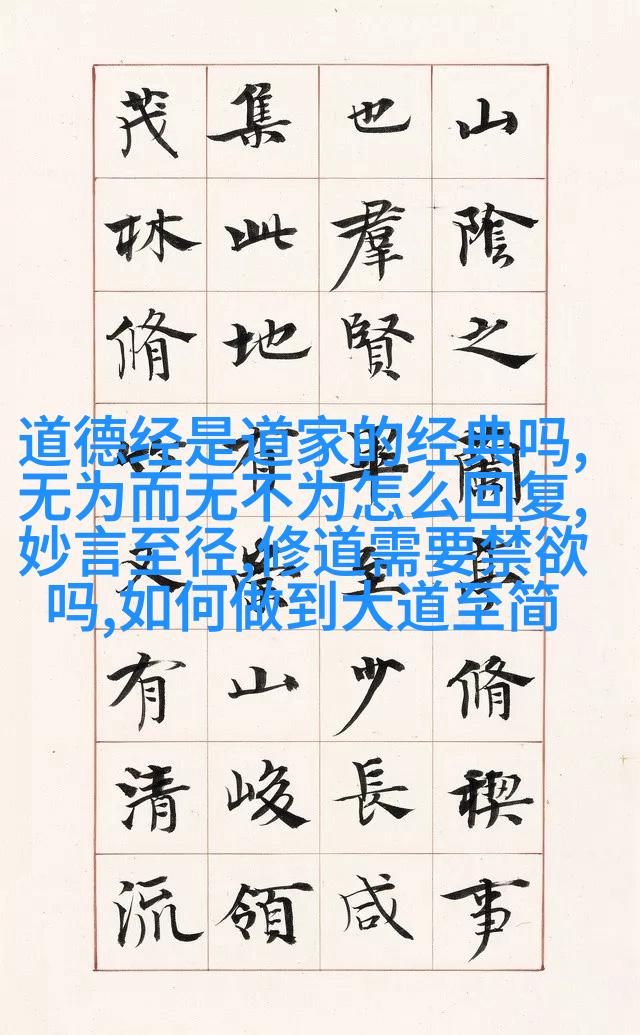 山陰之蘭亭脩禊事
也羣賢畢至少長咸
集此地有崇山峻領
茂林脩竹又有清流
道德经是道家的经典吗,
无为而无不为怎么回复,
妙言至径,修道需要禁欲
吗,如何做到大道至简